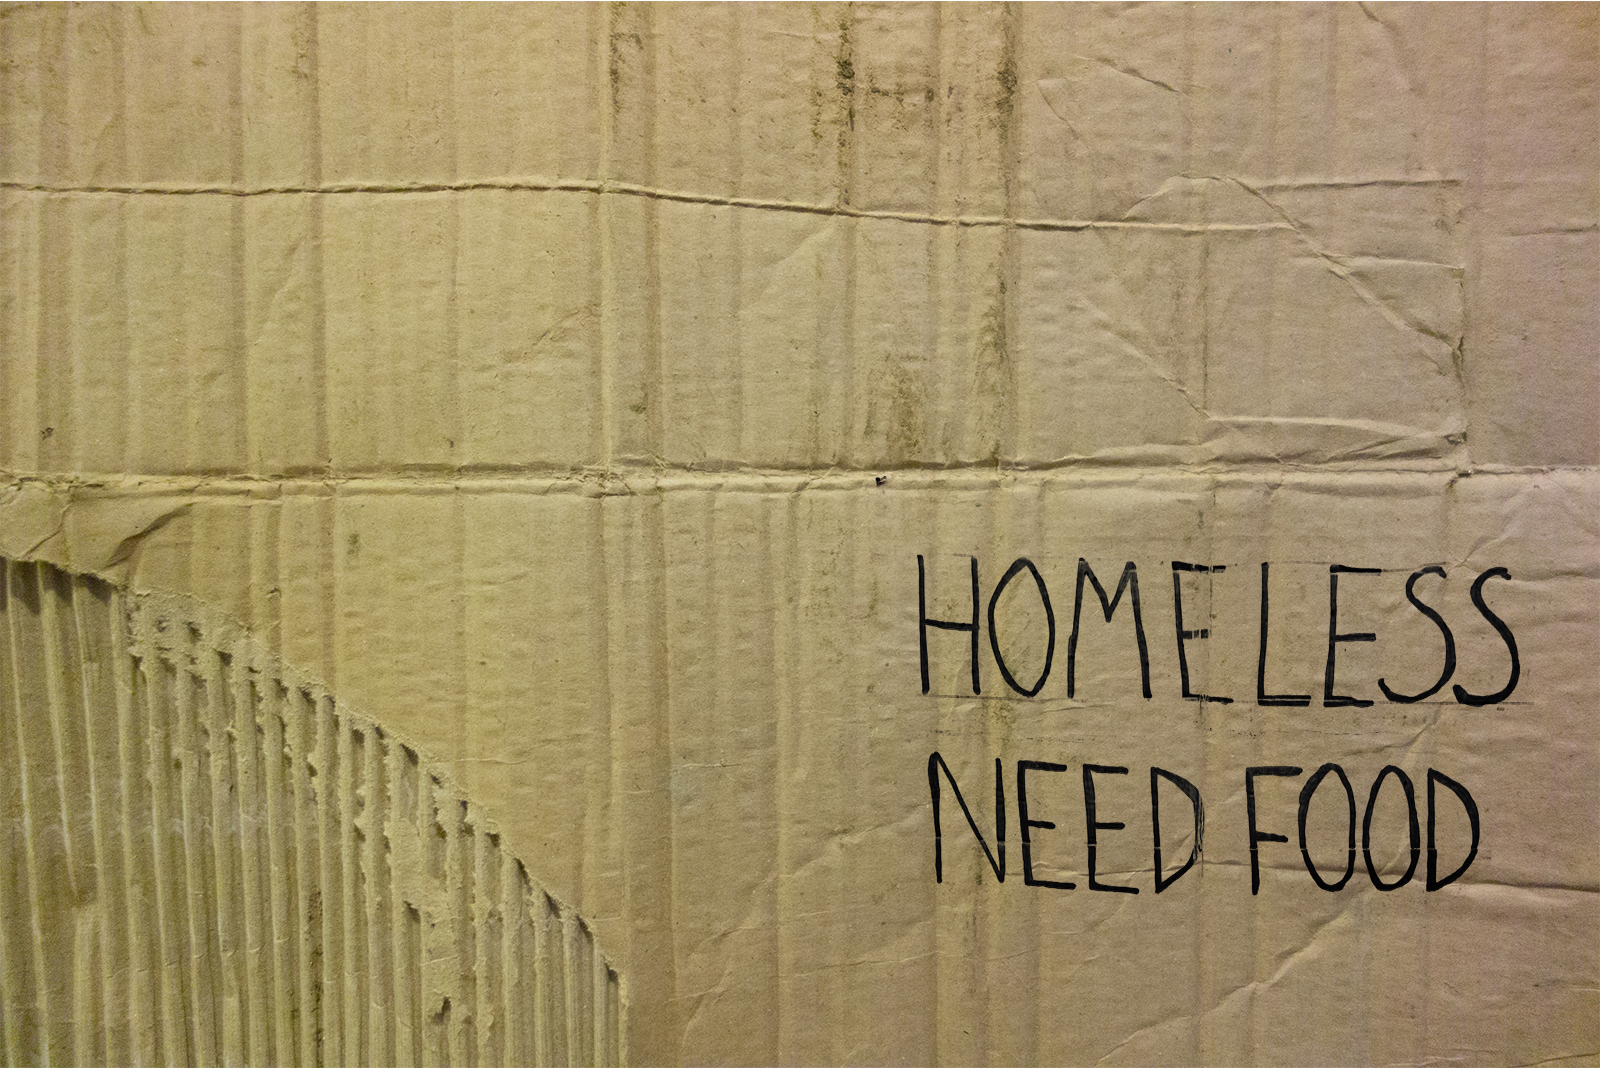 HOMELESS
NEED FOOD